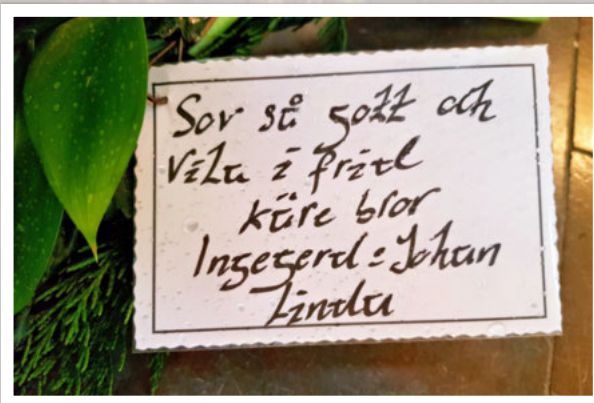 Sov så gott och
Vila i frid
käre bror
Ingegerd = Johan
Linda